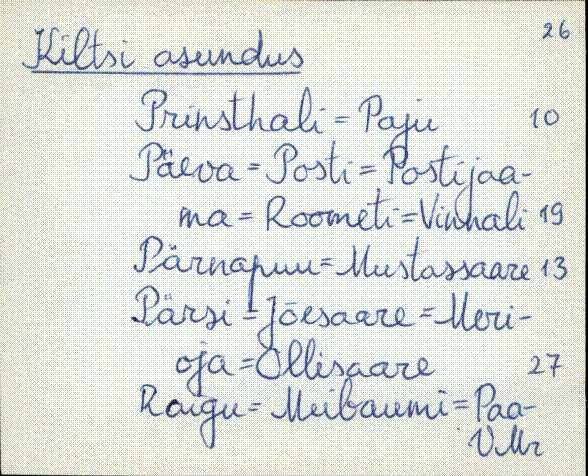 26
Kiltsi asundus
Prinsthali = Paju 10
Päeva = Posti = Postijaa-
ma = Roometi = Vinnali 19
Pärnapuu = Mustassaare 13
Pärsi = Jõesaare = Meri-
oja = Ollisaare 27
Raigu = Meibaumi = Paa-
V Mr